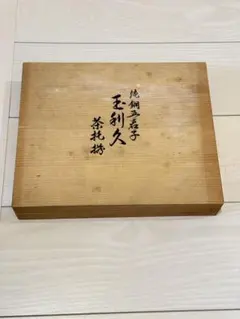 純銅五客
玉利久
茶托揃